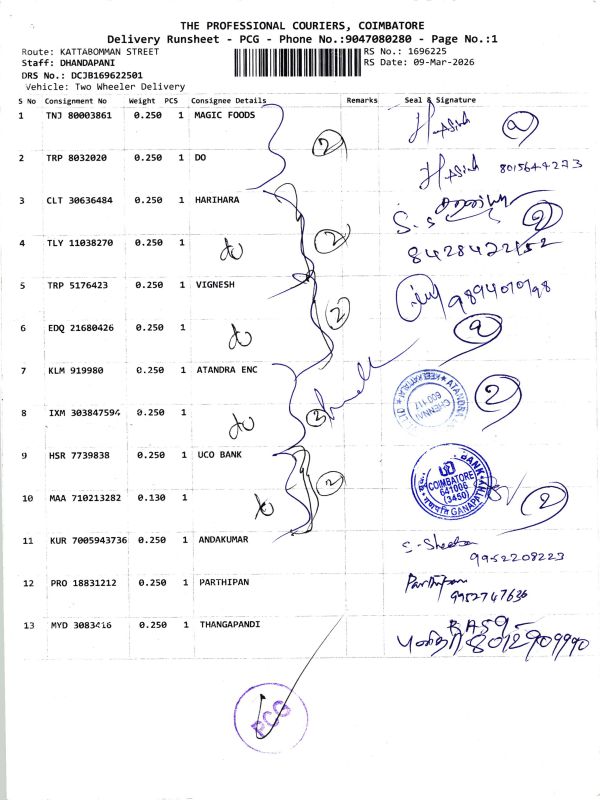 THE PROFESSIONAL COURIERS, COIMBATORE
Delivery Runsheet - PCG - Phone No.:9047080280 - Page No.:1
Route: KATTABOMMAN STREET
RS No.: 1696225
Staff: DHANDAPANI
RS Date: 09-Mar-2026
DRS No.: DCJB169622501
Vehicle: Two Wheeler Delivery
S No Consignment No Weight PCS Consignee Details Remarks Seal & Signature
1 TNJ 80003861 0.250 1 MAGIC FOODS 2 2
2 TRP 8032020 0.250 1 DO 8015644273
3 CLT 30636484 0.250 1 HARIHARA S.S 2
4 TLY 11038270 0.250 1 do 2 8428422152
5 TRP 5176423 0.250 1 VIGNESH 9894010198
6 EDQ 21680426 0.250 1 do 2 2
7 KLM 919980 0.250 1 ATANDRA ENC ATANDRA CHENNAI 600 117
8 IXM 303847594 0.250 1 do 2 2
9 HSR 7739838 0.250 1 UCO BANK BANK COIMBATORE 641006 (3450) GANAPATHY
10 MAA 710213282 0.130 1 do 2 2
11 KUR 7005943736 0.250 1 ANDAKUMAR 9952208223
12 PRO 18831212 0.250 1 PARTHIPAN Parthipan 9952747636
13 MYD 3083416 0.250 1 THANGAPANDI 8012909990
PCG